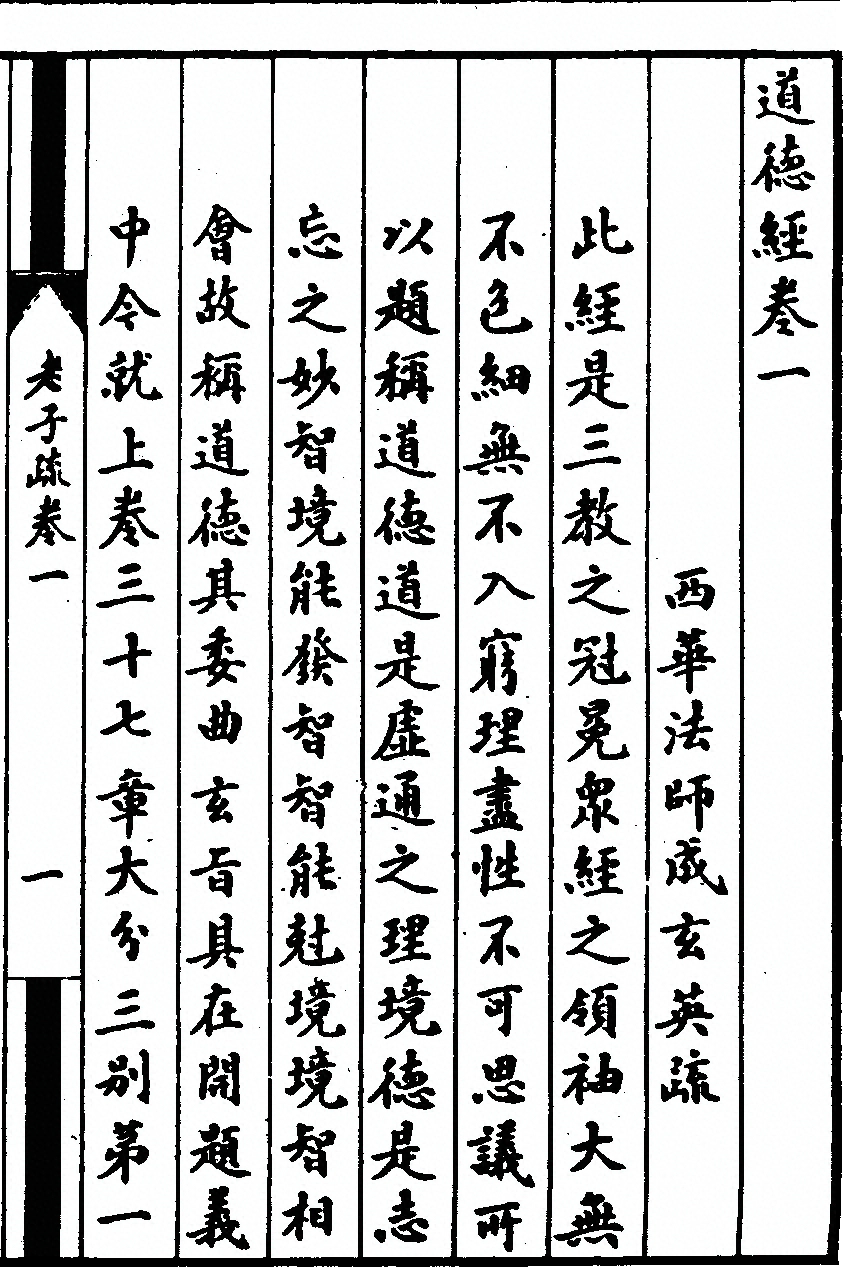 道德經卷一
西華法師成玄英疏
此經是三教之冠冕衆經之領袖大無
不色細無不入窮理盡性不可思議所
以題稱道德道是虛通之理境德是志
忘之妙智境能發智智能尅境境智相
會故稱道德其委曲玄旨具在開題義
中今就上卷三十七章大分三別第一
老子疏卷一
一